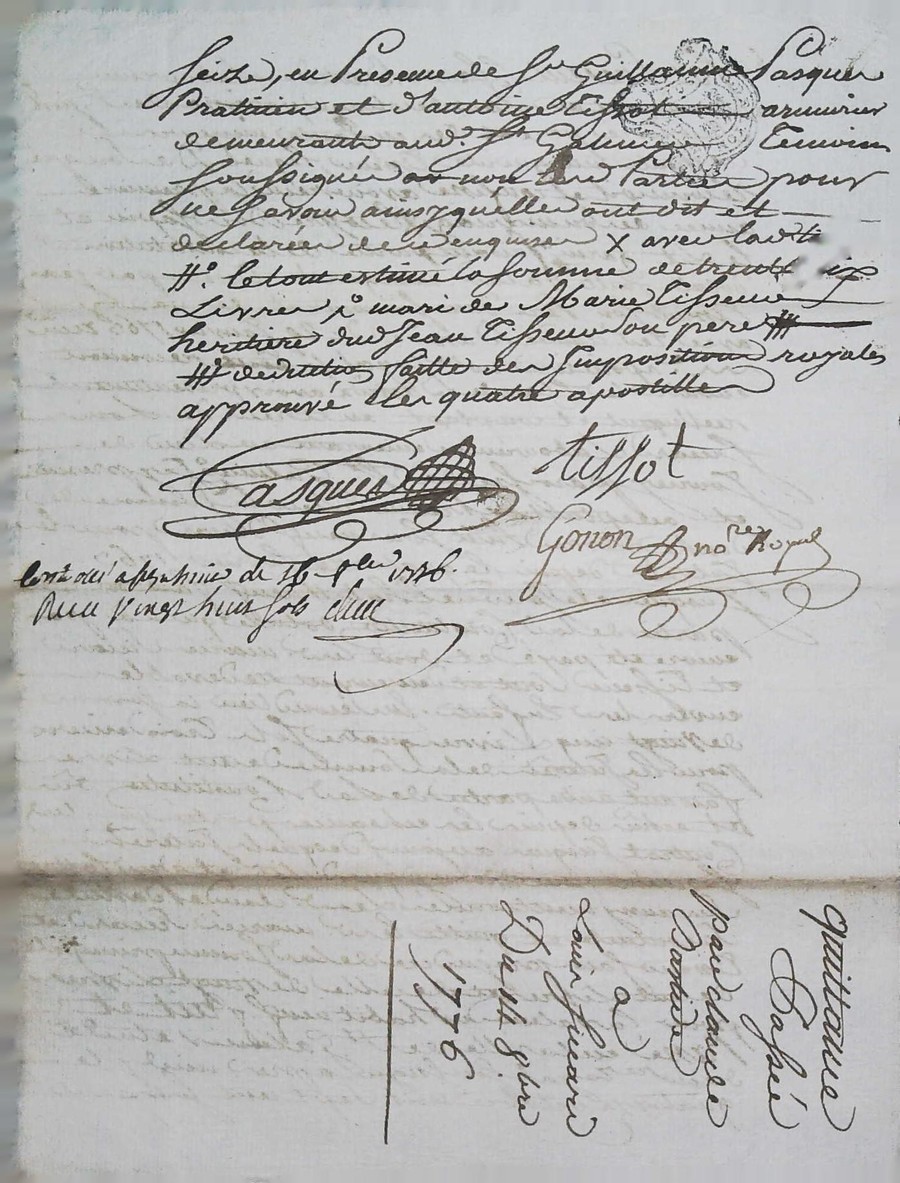 seize, en Presence de Sr Guillaume Pasques
Praticien et d'antoine Tissot armurier
demeurants aud. St Galmier Temoins
soussignés et non les Parties pour
ne savoir ainsy quelles ont dit et
declarées de ce enquises x avec lad
#° le tout estimé la somme de trente
Livres, mari de Marie Tisseur
heritiere dud Jean Tisseur son pere
#° deduction faitte des Impositions royales
approuvé les quatre apostilles
Pasques
tissot
Gonon nore Royal
de 16 1776.
Receu vingt huit sols
quittance
Passée
par claude
à
Louis
Du 14 8bre
1776